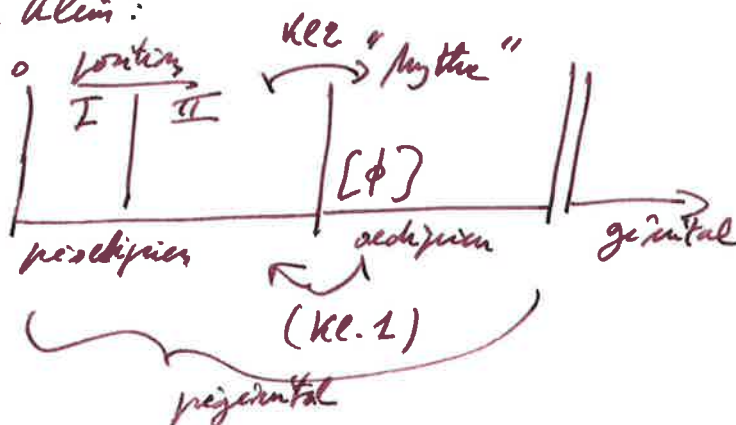 Klein :
0 position Kl 2 "Mythe"
I II
[φ]
préoedipien oedipien génital
(Kl. 1)
prégénital